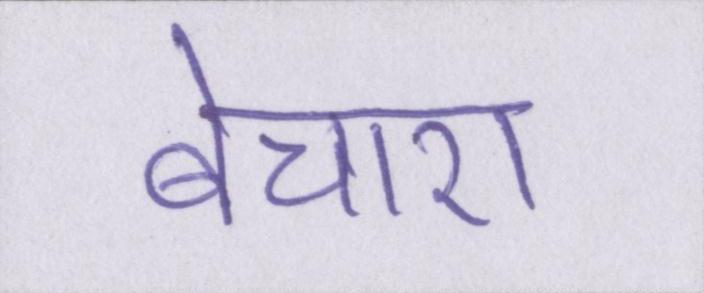 बेचारा